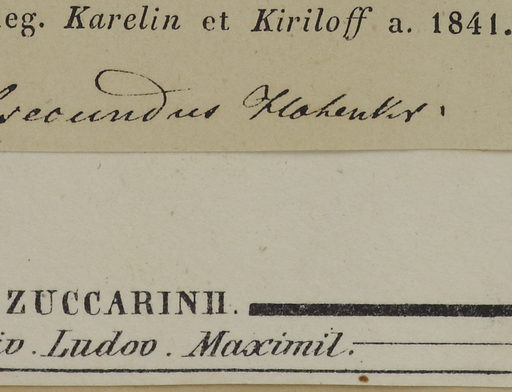 leg. Karelin et Kiriloff a. 1841.
secundus Hohenkr.
ZUCCARINII.
iv. Ludov. Maximil.